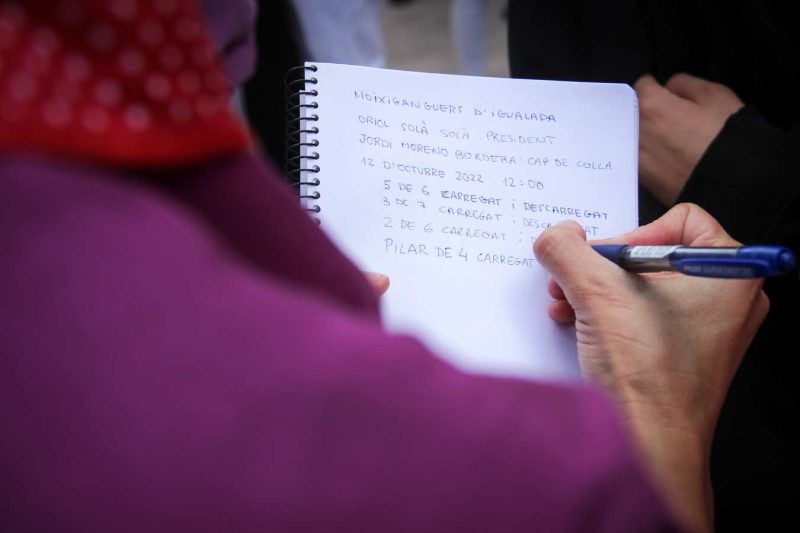 MOIXIGANGUERS D'IGUALADA
ORIOL SOLÀ SOLÀ: PRESIDENT
JORDI MORENO BORDERA: CAP DE COLLA
12 D'OCTUBRE 2022 12:00
5 DE 6 CARREGAT i DESCARREGAT
3 DE 7 CARREGAT i
2 DE 6 CARREGAT i
PILAR DE 4 CARREGAT